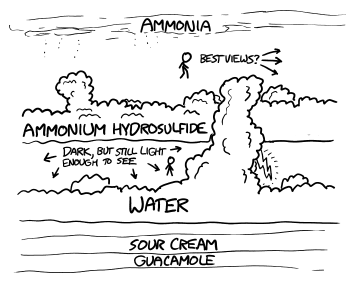 AMMONIA
BEST VIEWS?
AMMONIUM HYDROSULFIDE
DARK, BUT STILL LIGHT
ENOUGH TO SEE
WATER
SOUR CREAM
GUACAMOLE